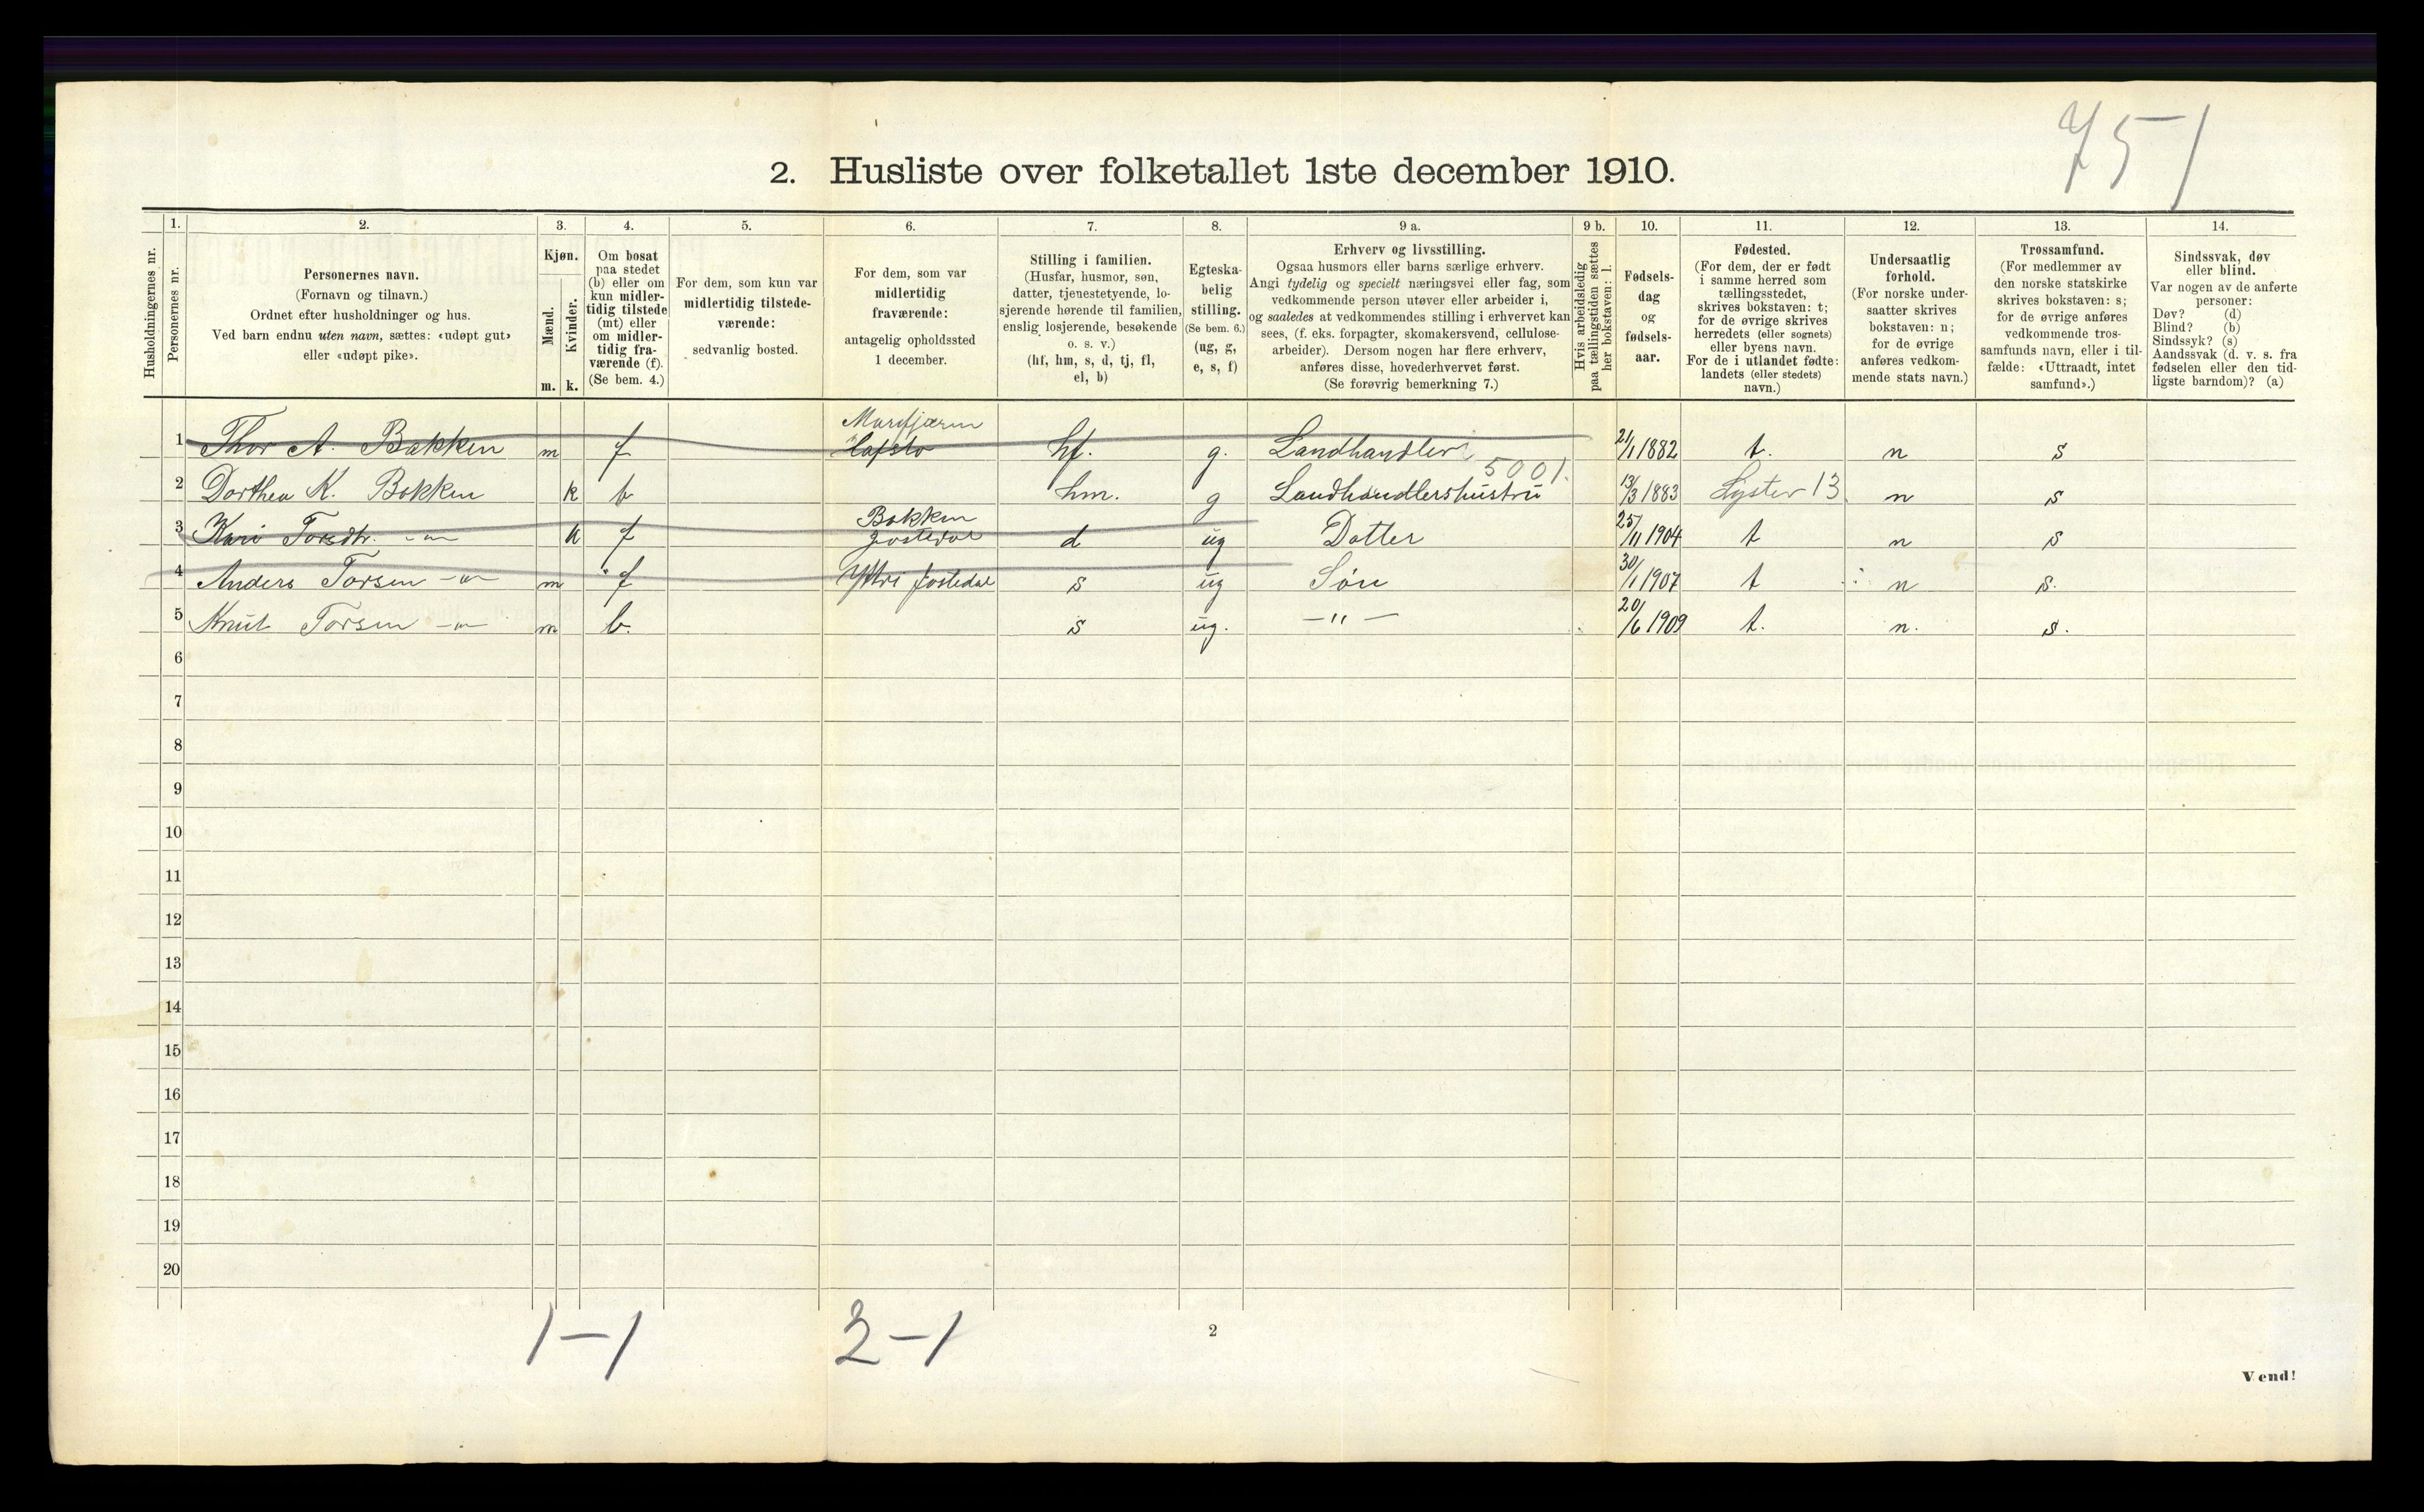 751
2. Husliste over folketallet 1ste december 1910.
Husholdningernes nr.
1. Personernes nr.
2. Personernes navn. (Fornavn og tilnavn.) Ordnet efter husholdninger og hus. Ved barn endnu uten navn, sættes: «udøpt gut» eller «udøpt pike».
3. Kjøn. Mænd. m. Kvinder. k.
4. Om bosat paa stedet (b) eller om kun midlertidig tilstede (mt) eller om midlertidig fraværende (f). (Se bem. 4.)
5. For dem, som kun var midlertidig tilstedeværende: sedvanlig bosted.
6. For dem, som var midlertidig fraværende: antagelig opholdssted 1 december.
7. Stilling i familien. (Husfar, husmor, søn, datter, tjenestetyende, losjerende hørende til familien, enslig losjerende, besøkende o. s. v.) (hf, hm, s, d, tj, fl, el, b)
8. Egteskabelig stilling. (Se bem. 6.) (ug, g, e, s, f)
9 a. Erhverv og livsstilling. Ogsaa husmors eller barns særlige erhverv. Angi tydelig og specielt næringsvei eller fag, som vedkommende person utøver eller arbeider i, og saaledes at vedkommendes stilling i erhvervet kan sees, (f. eks. forpagter, skomakersvend, cellulosearbeider). Dersom nogen har flere erhverv, anføres disse, hovederhvervet først. (Se forøvrig bemerkning 7.)
9 b. Hvis arbeidsledig paa tællingstiden sættes her bokstaven: l.
10. Fødselsdag og fødselsaar.
11. Fødested. (For dem, der er født i samme herred som tællingsstedet, skrives bokstaven: t; for de øvrige skrives herredets (eller sognets) eller byens navn. For de i utlandet fødte: landets (eller stedets) navn.)
12. Undersaatlig forhold. (For norske undersaatter skrives bokstaven: n; for de øvrige anføres vedkommende stats navn.)
13. Trossamfund. (For medlemmer av den norske statskirke skrives bokstaven: s; for de øvrige anføres vedkommende trossamfunds navn, eller i tilfælde: «Uttraadt, intet samfund».)
14. Sindssvak, døv eller blind. Var nogen av de anførte personer: Døv? (d) Blind? (b) Sindssyk? (s) Aandssvak (d. v. s. fra fødselen eller den tidligste barndom)? (a)
Marifjæren
1 Thor A. Bakken m f Hafslo hf. g. Landhandler 21/1 1882 t. n s
5001.
2 Dorthea K. Bakken k b hm. g Landhandlershustru 13/3 1883 Lyster 13 n s
Bakken
3 Kari Torsdtr. -"- k f Jostedal d ug Datter 25/11 1904 t n s
4 Anders Torsen -"- m f Ytri Jostedal s ug Søn 30/1 1907 t n s.
5 Knut Torsen -"- m b. s ug. -"- 20/6 1909 t. n. s.
6
7
8
9
10
11
12
13
14
15
16
17
18
19
20
1-1 2-1
2
Vend!